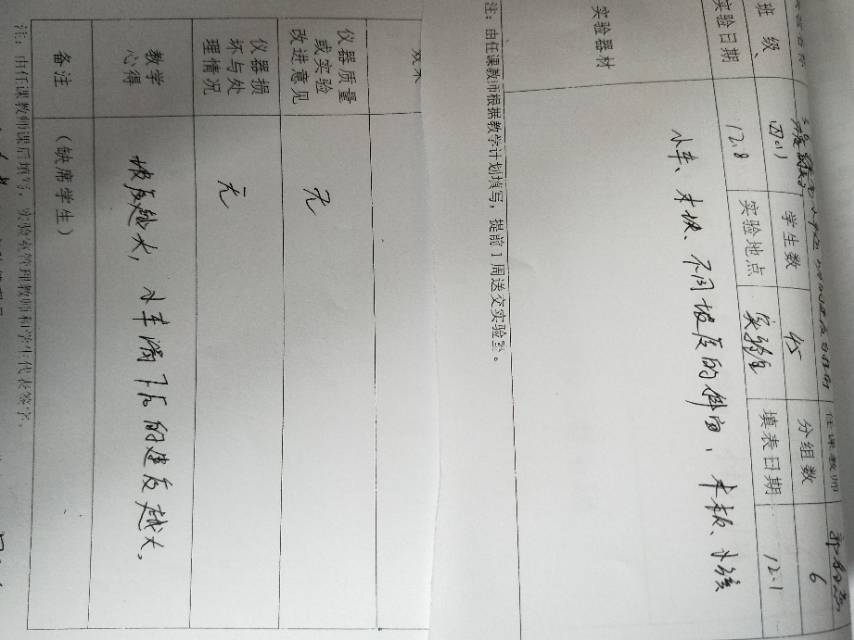 班 级 四(1) 学生数 45 分组数 6
实验日期 12.8 实验地点 实验室 填表日期 12.1
实验器材
小车、木块、不同坡度的斜面、木板、
注：由任课教师根据教学计划填写，提前1周送交实验室。
效果
仪器质量
或实验
改进意见
无
仪器损
坏与处
理情况
无
教学
心得
坡度越大，小车滑下后的速度越大。
备注
（缺席学生）
注：由任课教师课后填写，实验室管理教师和学生代表签字。